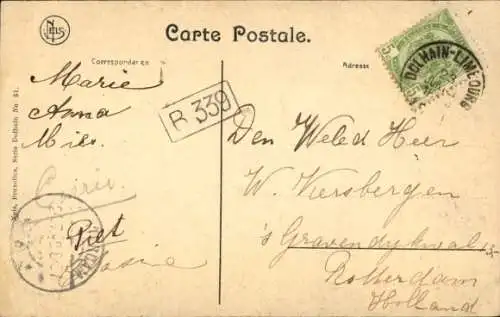 Carte Postale.
Correspondance
Adresse
5
DOLHAIN-LIMBOURG
R 339
Marie
Anna
Mies
Piet
Nels, Bruxelles, Serie Dolhain No. 31.
Den Weled Heer
W. Viersbergen
's Gravendykwal
Rotterdam
Holland